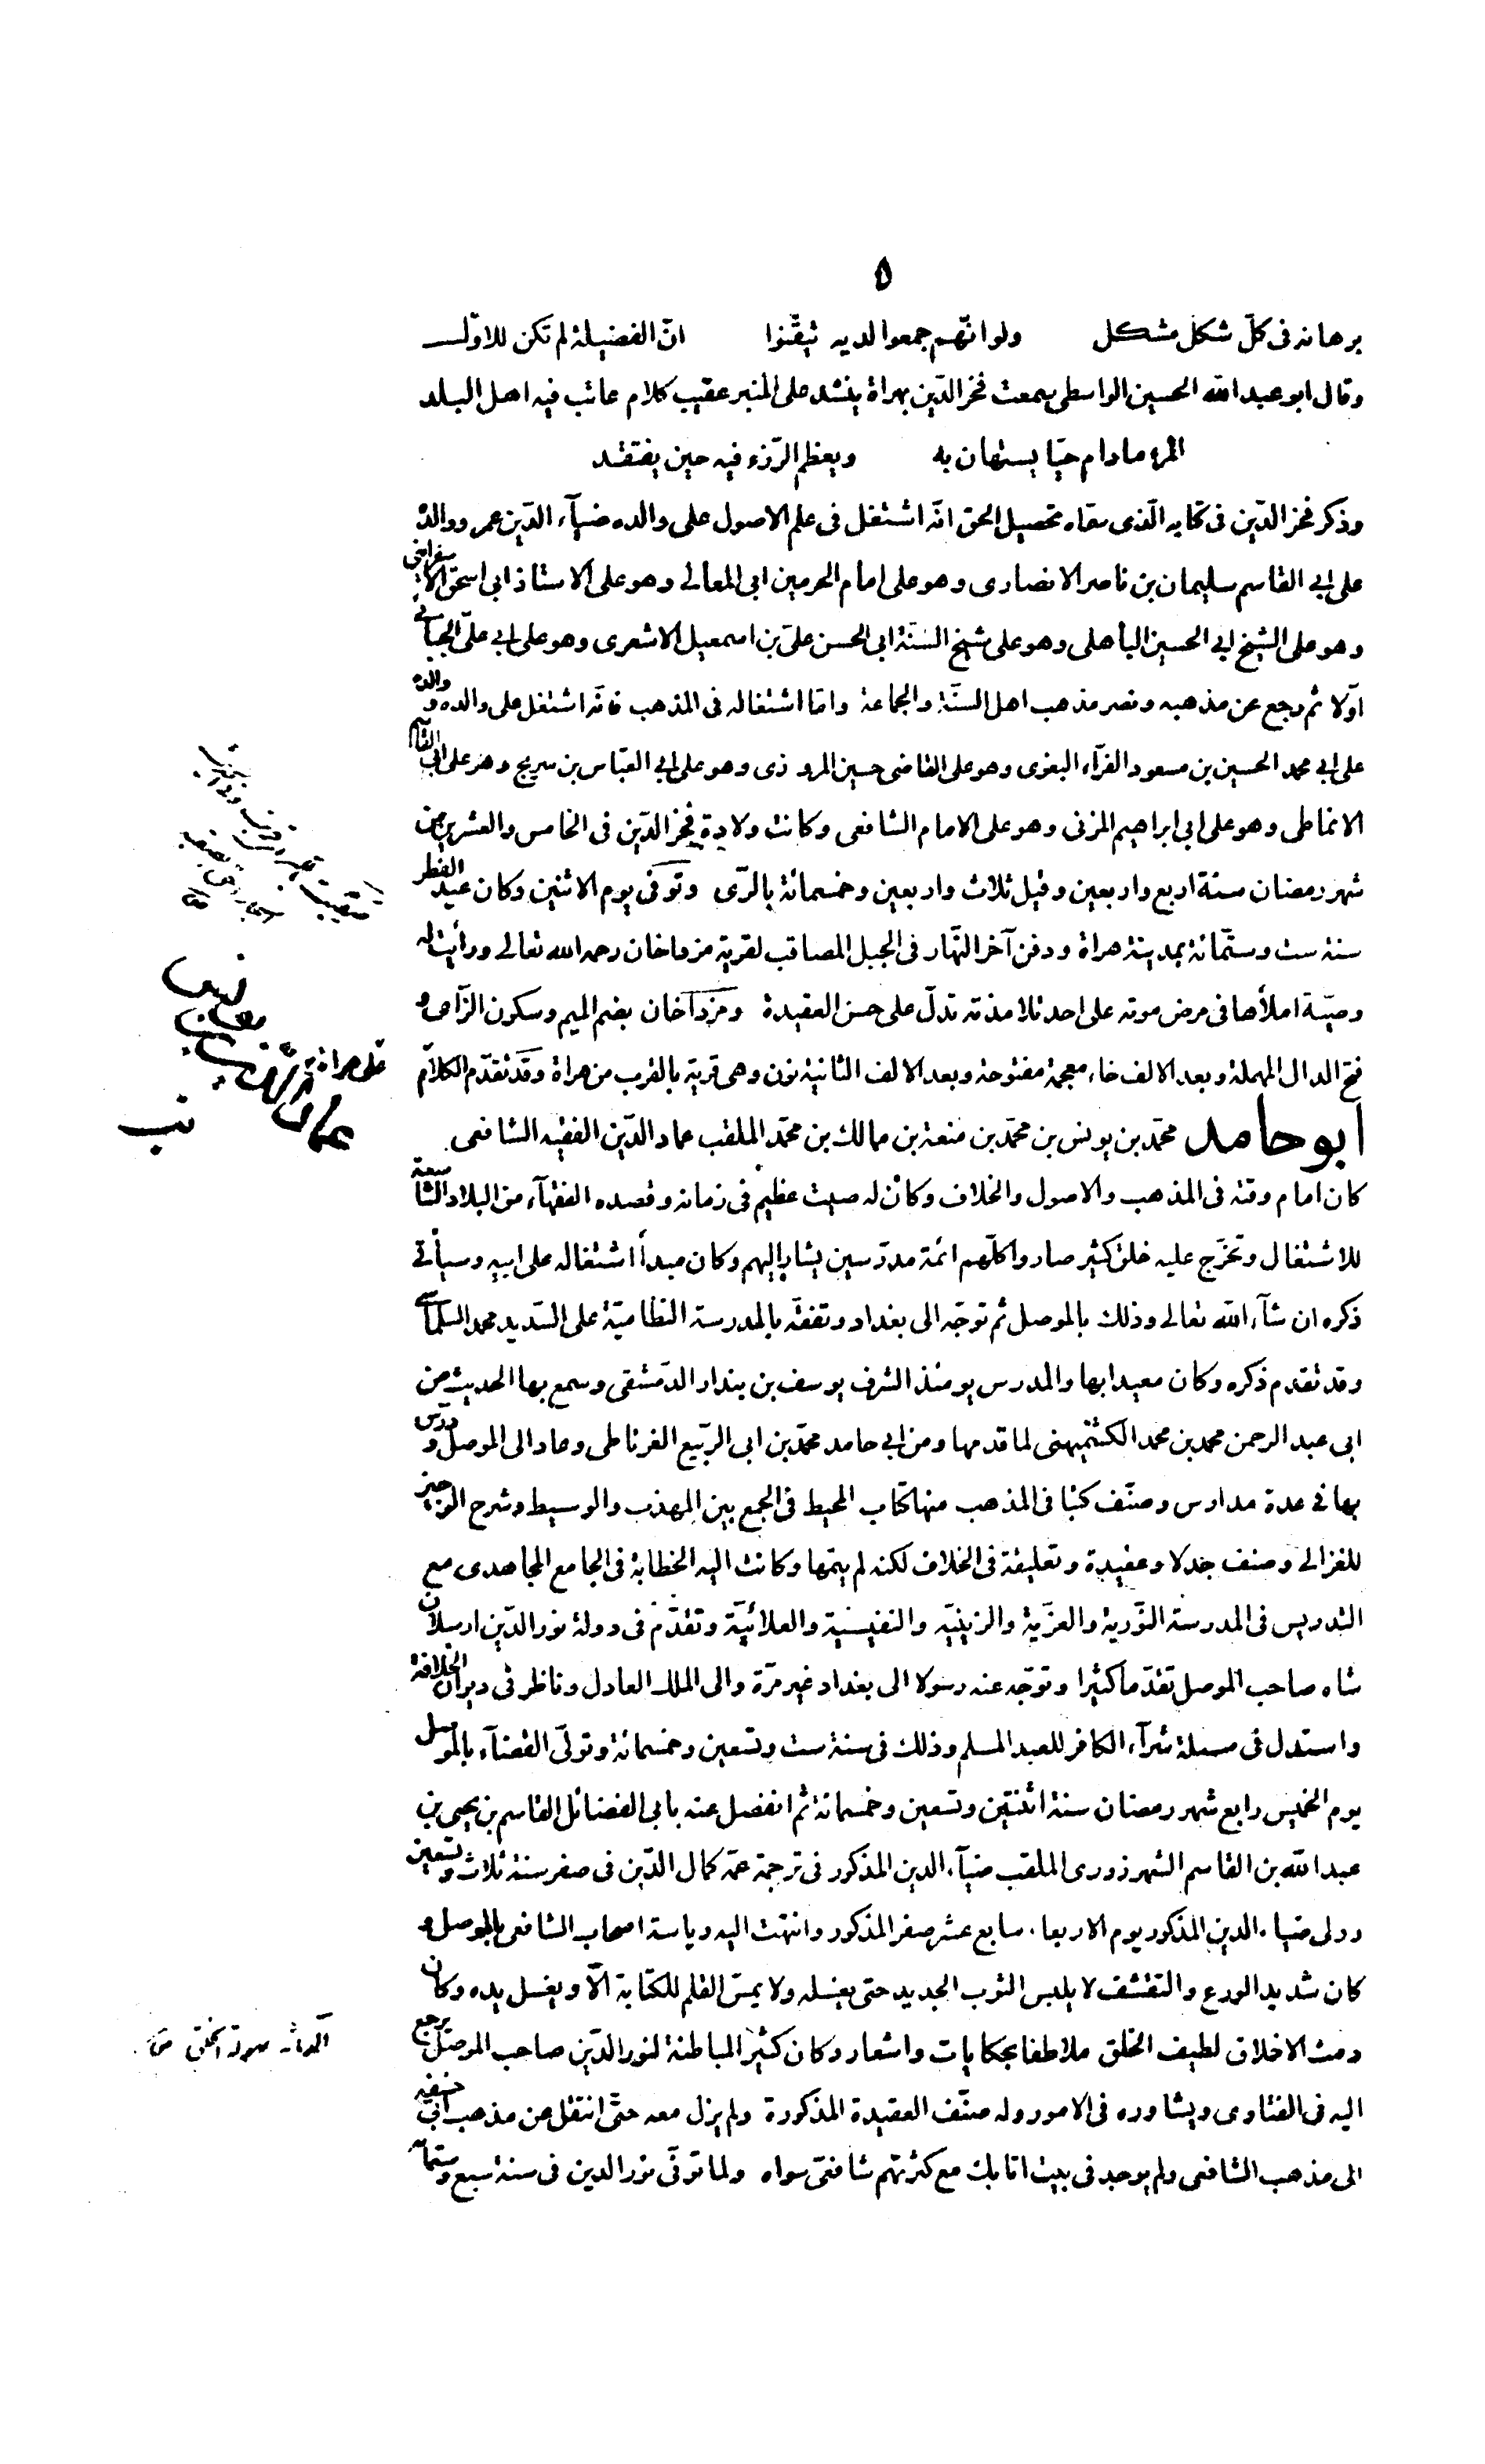 ٥
برهانه فى كلّ شكل مشكل ولو انّهم جمعوا لديه تيقّنوا انّ الفضيلة لم تكن للاوّل
وقال ابو عبد الله الحسين الواسطى سمعت فخر الدّين بهراة ينشد على المنبر عقيب كلام عاتب فيه اهل البلد
المرء مادام حيّا يستهان به ويعظم الرّزء فيه حين يفتقد
وذكر فخر الدّين فى كتابه الّذى سمّاه تحصيل الحق انّه اشتغل فى علم الاصول على والده ضيآء الدّين عمر ووالده
على ابى القاسم سليمان بن ناصر الانصارى وهو على امام الحرمين ابى المعالى وهو على الاستاذ ابى اسحق الاسفراينى
وهو على الشيخ ابى الحسين الباهلى وهو على شيخ السّنّة ابى الحسن علىّ بن اسمعيل الاشعرى وهو على ابى علىّ الجبائى
اوّلا ثم رجع عن مذهبه ونصر مذهب اهل السنّة والجماعة وامّا اشتغاله فى المذهب فانّه اشتغل على والده ووالده
على ابى محمد الحسين بن مسعود الفرّاء البغوى وهو على القاضى حسين المروذى وهو على ابى العبّاس بن سريج وهو على ابى القاسم
الانماطى وهو على ابى ابراهيم المزنى وهو على الامام الشافعى وكانت ولادة فخر الدّين فى الخامس والعشرين من
شهر رمضان سنة اربع واربعين وقيل ثلاث واربعين وخمسمائة بالرّى وتوفى يوم الاثنين وكان عيد الفطر
سنة ست وستّمائة بمدينة هراة ودفن آخر النّهار فى الجبل المصاقب لقرية مزداخان رحمه الله تعالى ورأيت له
وصيّة املأها فى مرض موته على احد تلامذته تدلّ على حسن العقيدة ومزداخان بضم الميم وسكون الزّاى و
فتح الدال المهملة وبعد الالف خاء معجمة مفتوحة وبعد الالف الثانية نون وهى قرية بالقرب من هراة وقد تقدّم الكلام
على هراة
ابو حامد محمّد بن يونس بن محمّد بن منعة بن مالك بن محمّد الملقب عماد الدّين الفقيه الشافعى
كان امام وقته فى المذهب والاصول والخلاف وكان له صيت عظيم فى زمانه وقصده الفقهآء من البلاد الشاسعة
للاشتغال وتخرّج عليه خلق كثير صاروا كلّهم ائمة مدرّسين يشار اليهم وكان مبدأ اشتغاله على ابيه وسيأتى
ذكره ان شآء الله تعالى وذلك بالموصل ثم توجّه الى بغداد وتفقّه بالمدرسة النظاميّة على السّديد محمد السلماسى
وقد تقدم ذكره وكان معيدا بها والمدرس يومئذ الشرف يوسف بن بندار الدّمشقى وسمع بها الحديث من
ابى عبد الرحمن محمد بن محمد الكشميهنى لما قدمها ومن ابى حامد محمّد بن ابى الرّبيع الغرناطى وعاد الى الموصل ودرّس
بها فى عدة مدارس وصنّف كتبا فى المذهب منها كتاب المحيط فى الجمع بين المهذب والوسيط وشرح الوجيز
للغزالى وصنف جدلا وعقيدة وتعليقة فى الخلاف لكنه لم يتمّها وكانت اليه الخطابة فى الجامع المجاهدى مع
التدريس فى المدرسة النّورية والعزّية والزينيّه والنفيسية والعلائيّة وتقدّم فى دولة نور الدّين ارسلان
شاه صاحب الموصل تقدّما كثيرا وتوجّه عنه رسولا الى بغداد غير مرّة والى الملك العادل وناظر فى ديوان الخلافة
واستدل فى مسئلة شرآء الكافر للعبد المسلم وذلك فى سنة ست وتسعين وخمسمائة وتولّى القضآء بالموصل
يوم الخميس رابع شهر رمضان سنة اثنتين وتسعين وخمسمائة ثم انفصل عنه بابى الفضائل القاسم بن يحيى بن
عبد الله بن القاسم الشهرزورى الملقب ضيآء الدين المذكور فى ترجمة عمّه كمال الدّين فى صفر سنة ثلاث وتسعين
وولى ضياء الدين المذكور يوم الاربعاء سابع عشر صفر المذكور وانتهت اليه رياسة اصحاب الشافعى بالموصل و
كان شديد الورع والتقشف لا يلبس الثوب الجديد حتى يغسله ولا يمسّ القلم للكتابة الّا ويغسل يده وكان
دمث الاخلاق لطيف الخلق ملاطفا بحكايات واشعار وكان كثير المباطنة لنور الدّين صاحب الموصل يرجع
اليه فى الفتاوى ويشاوره فى الامور وله صنّف العقيدة المذكورة ولم يزل معه حتّى انتقل من مذهب ابى حنيفه
الى مذهب الشافعى ولم يوجد فى بيت اتابك مع كثرتهم شافعىّ سواه ولما توفى نور الدين فى سنة سبع وستمآئة
الدماثه سهولة الخلق